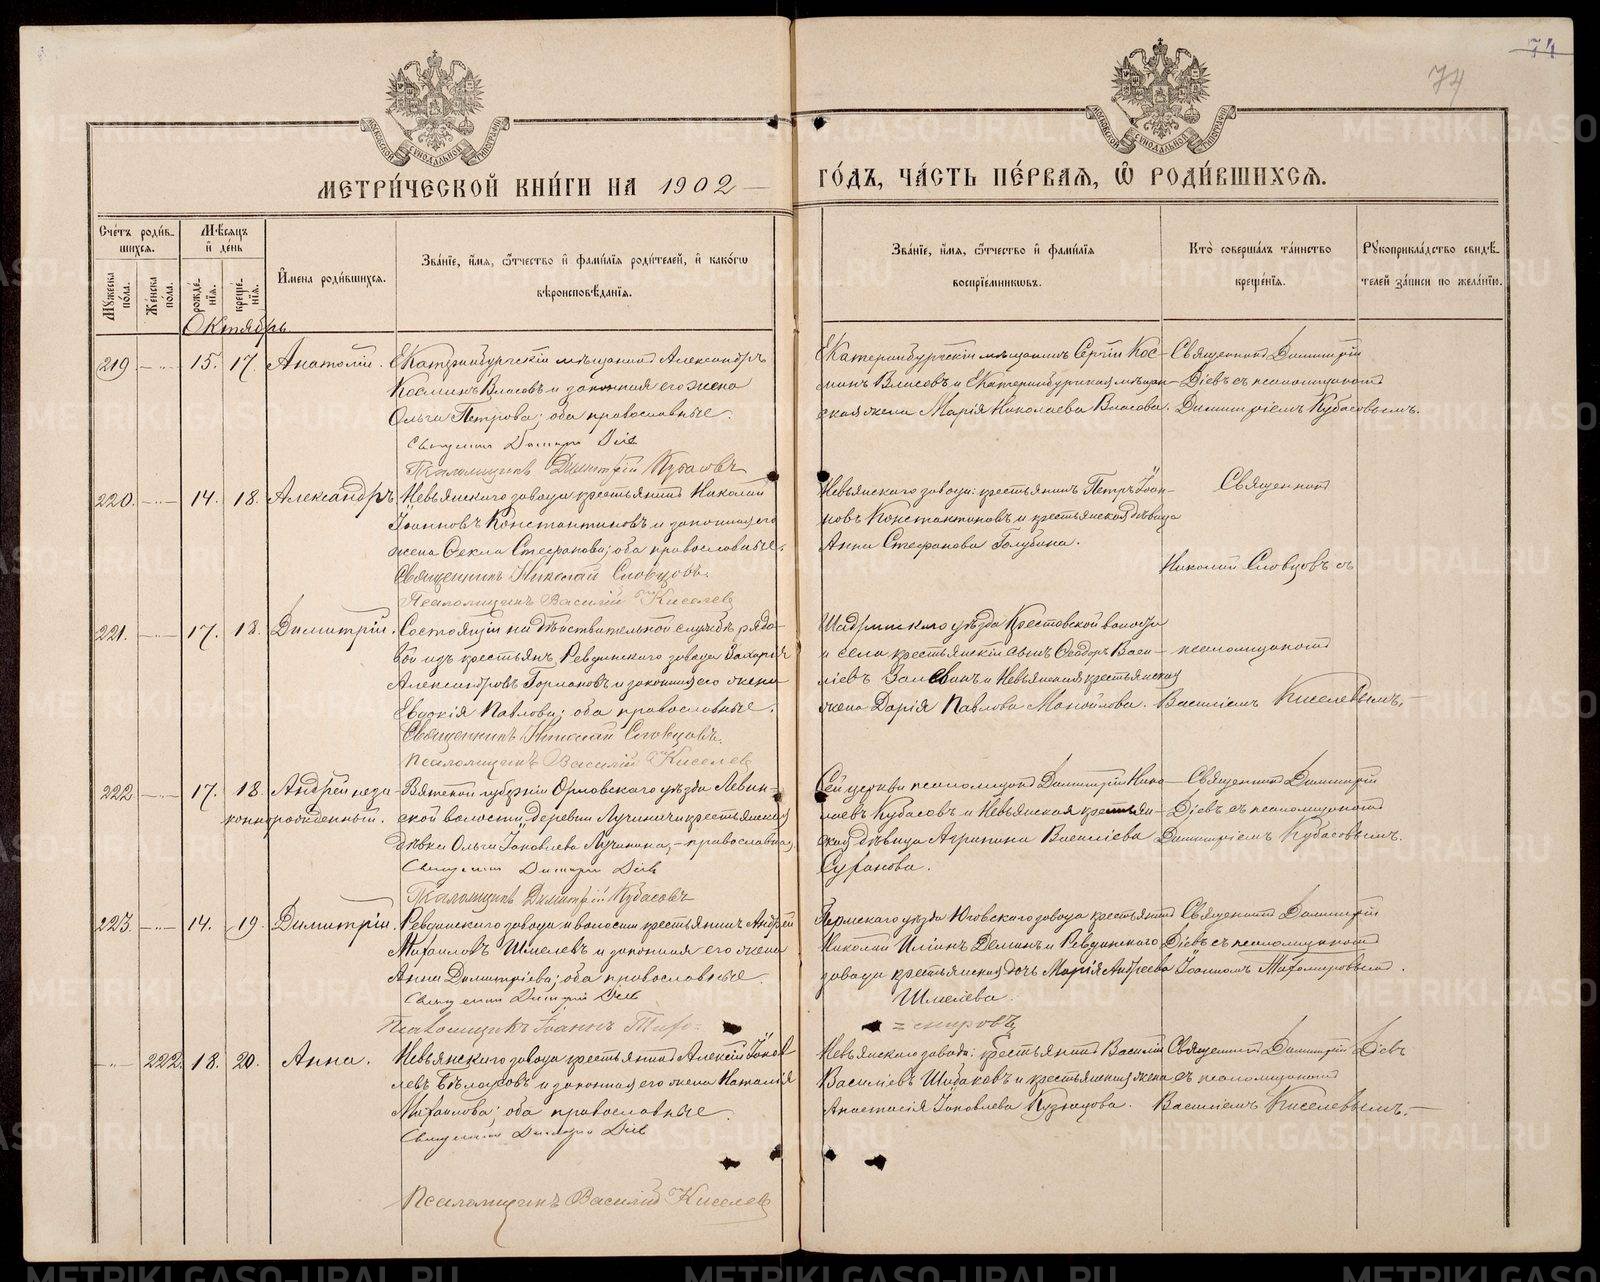 74
74
МЕТРИ́ЧЕСКОЙ КНИ́ГИ НА 1902 ГО́ДЪ, ЧА́СТЬ ПЕ́РВАЯ, Ѡ РОДИ́ВШИХСЯ.
Сче́тъ роди́вшихся.
Мѣсяцъ и де́нь
Мꙋжеска по́ла.
Же́нска по́ла.
рожде́нїѧ.
креще́нїѧ.
И́мена роди́вшихсѧ.
Зва́нїе, и́мѧ, ѻ҆́тчество и҆ фами́лїѧ роди́телей, и҆ како́гѡ
вѣроисповѣ́данїѧ.
Зва́нїе, и́мѧ, ѻ҆́тчество и҆ фами́лїѧ
воспрїе́мниковъ.
Кто̀ соверша́лъ та́инство
креще́нїѧ.
Рꙋкоприкла́дство свидѣ́-
телей за́писи по жела́нїю.
Октябрь
219 15. 17. Анатолій. Екатеринбургскій мѣщанинъ Александръ
Косминъ Власовъ и законная его жена
Ольга Петрова; оба православные.
Священникъ Димитрій Діевъ
Псаломщикъ Димитрій Кубасовъ
Екатеринбургскій мѣщанинъ Сергій Кос-
минъ Власовъ и Екатеринбургская мѣщан-
ская жена Марія Николаева Власова.
Священникъ Димитрій
Діевъ съ псаломщикомъ
Димитріемъ Кубасовымъ.
220. 14. 18. Александръ Невьянскаго завода крестьянинъ Николай
Іоанновъ Константиновъ и законная его
жена Ѳекла Стефанова; оба православные.
Священникъ Николай Словцовъ.
Псаломщикъ Василій Киселевъ
Невьянскаго завода: крестьянинъ Петръ Іоан-
новъ Константиновъ и крестьянская дѣвица
Анна Стефанова Голубина.
Священникъ
Николай Словцовъ съ
221. 17. 18. Димитрій. Состоящій на дѣйствительной службѣ рядо-
вой изъ крестьянъ Ревдинскаго завода Захарій
Александровъ Гормановъ и законная его жена
Евдокія Павлова; оба православные.
Священникъ Николай Словцовъ.
Псаломщикъ Василій Киселевъ
Шадринскаго уѣзда Крестовской волости
и села крестьянскій сынъ Ѳеодоръ Васи-
ліевъ и Невьянская крестьянская
жена Дарія Павлова Манойлова.
псаломщикомъ
Василіемъ Киселевымъ.
222 17. 18. Андрей неза-
коннорожденный.
Вятской губерніи Орловскаго уѣзда Левин-
ской волости, деревни Лучиничи крестьянская
дѣвка Ольга Іаковлева Лучинина,-православная,
Священникъ Димитрій Діевъ
Псаломщикъ Димитрій Кубасовъ
Сей церкви псаломщикъ Димитрій Нико-
лаевъ Кубасовъ и Невьянская крестьян-
ская дѣвица Агрипина Василіева
Суханова.
Священникъ Димитрій
Діевъ съ псаломщикомъ
Димитріемъ Кубасовымъ.
223. 14. 19. Димитрій. Ревдинскаго завода и волости крестьянинъ Андрей
Михаиловъ Шмелевъ и законная его жена
Анна Димитріева; оба православные.
Священникъ Димитрій Діевъ
Псаломщикъ Іоаннъ Тихо=
=мировъ
Пермскаго уѣзда Юговскаго завода крестьянинъ
Николай Иліинъ Деминъ и Ревдинскаго
завода крестьянская дочь Марія Андреева
Шмелева.
Священникъ Димитрій
Діевъ съ псаломщикомъ
Іоанномъ Тихомировымъ.
222. 18. 20. Анна. Невьянскаго завода крестьянинъ Алексій Іаков-
левъ Бѣлоусовъ и законная его жена Наталія
Михаилова; оба православные.
Священникъ Димитрій Діевъ
Псаломщикъ Василій Киселевъ
Невьянскаго завода: крестьянинъ Василій
Василіевъ Шибаковъ и крестьянская жена
Анастасія Іаковлева Кузнецова.
Священникъ Димитрій Діевъ
съ псаломщикомъ
Василіемъ Киселевымъ.
METRIKI.GASO-URAL.RU